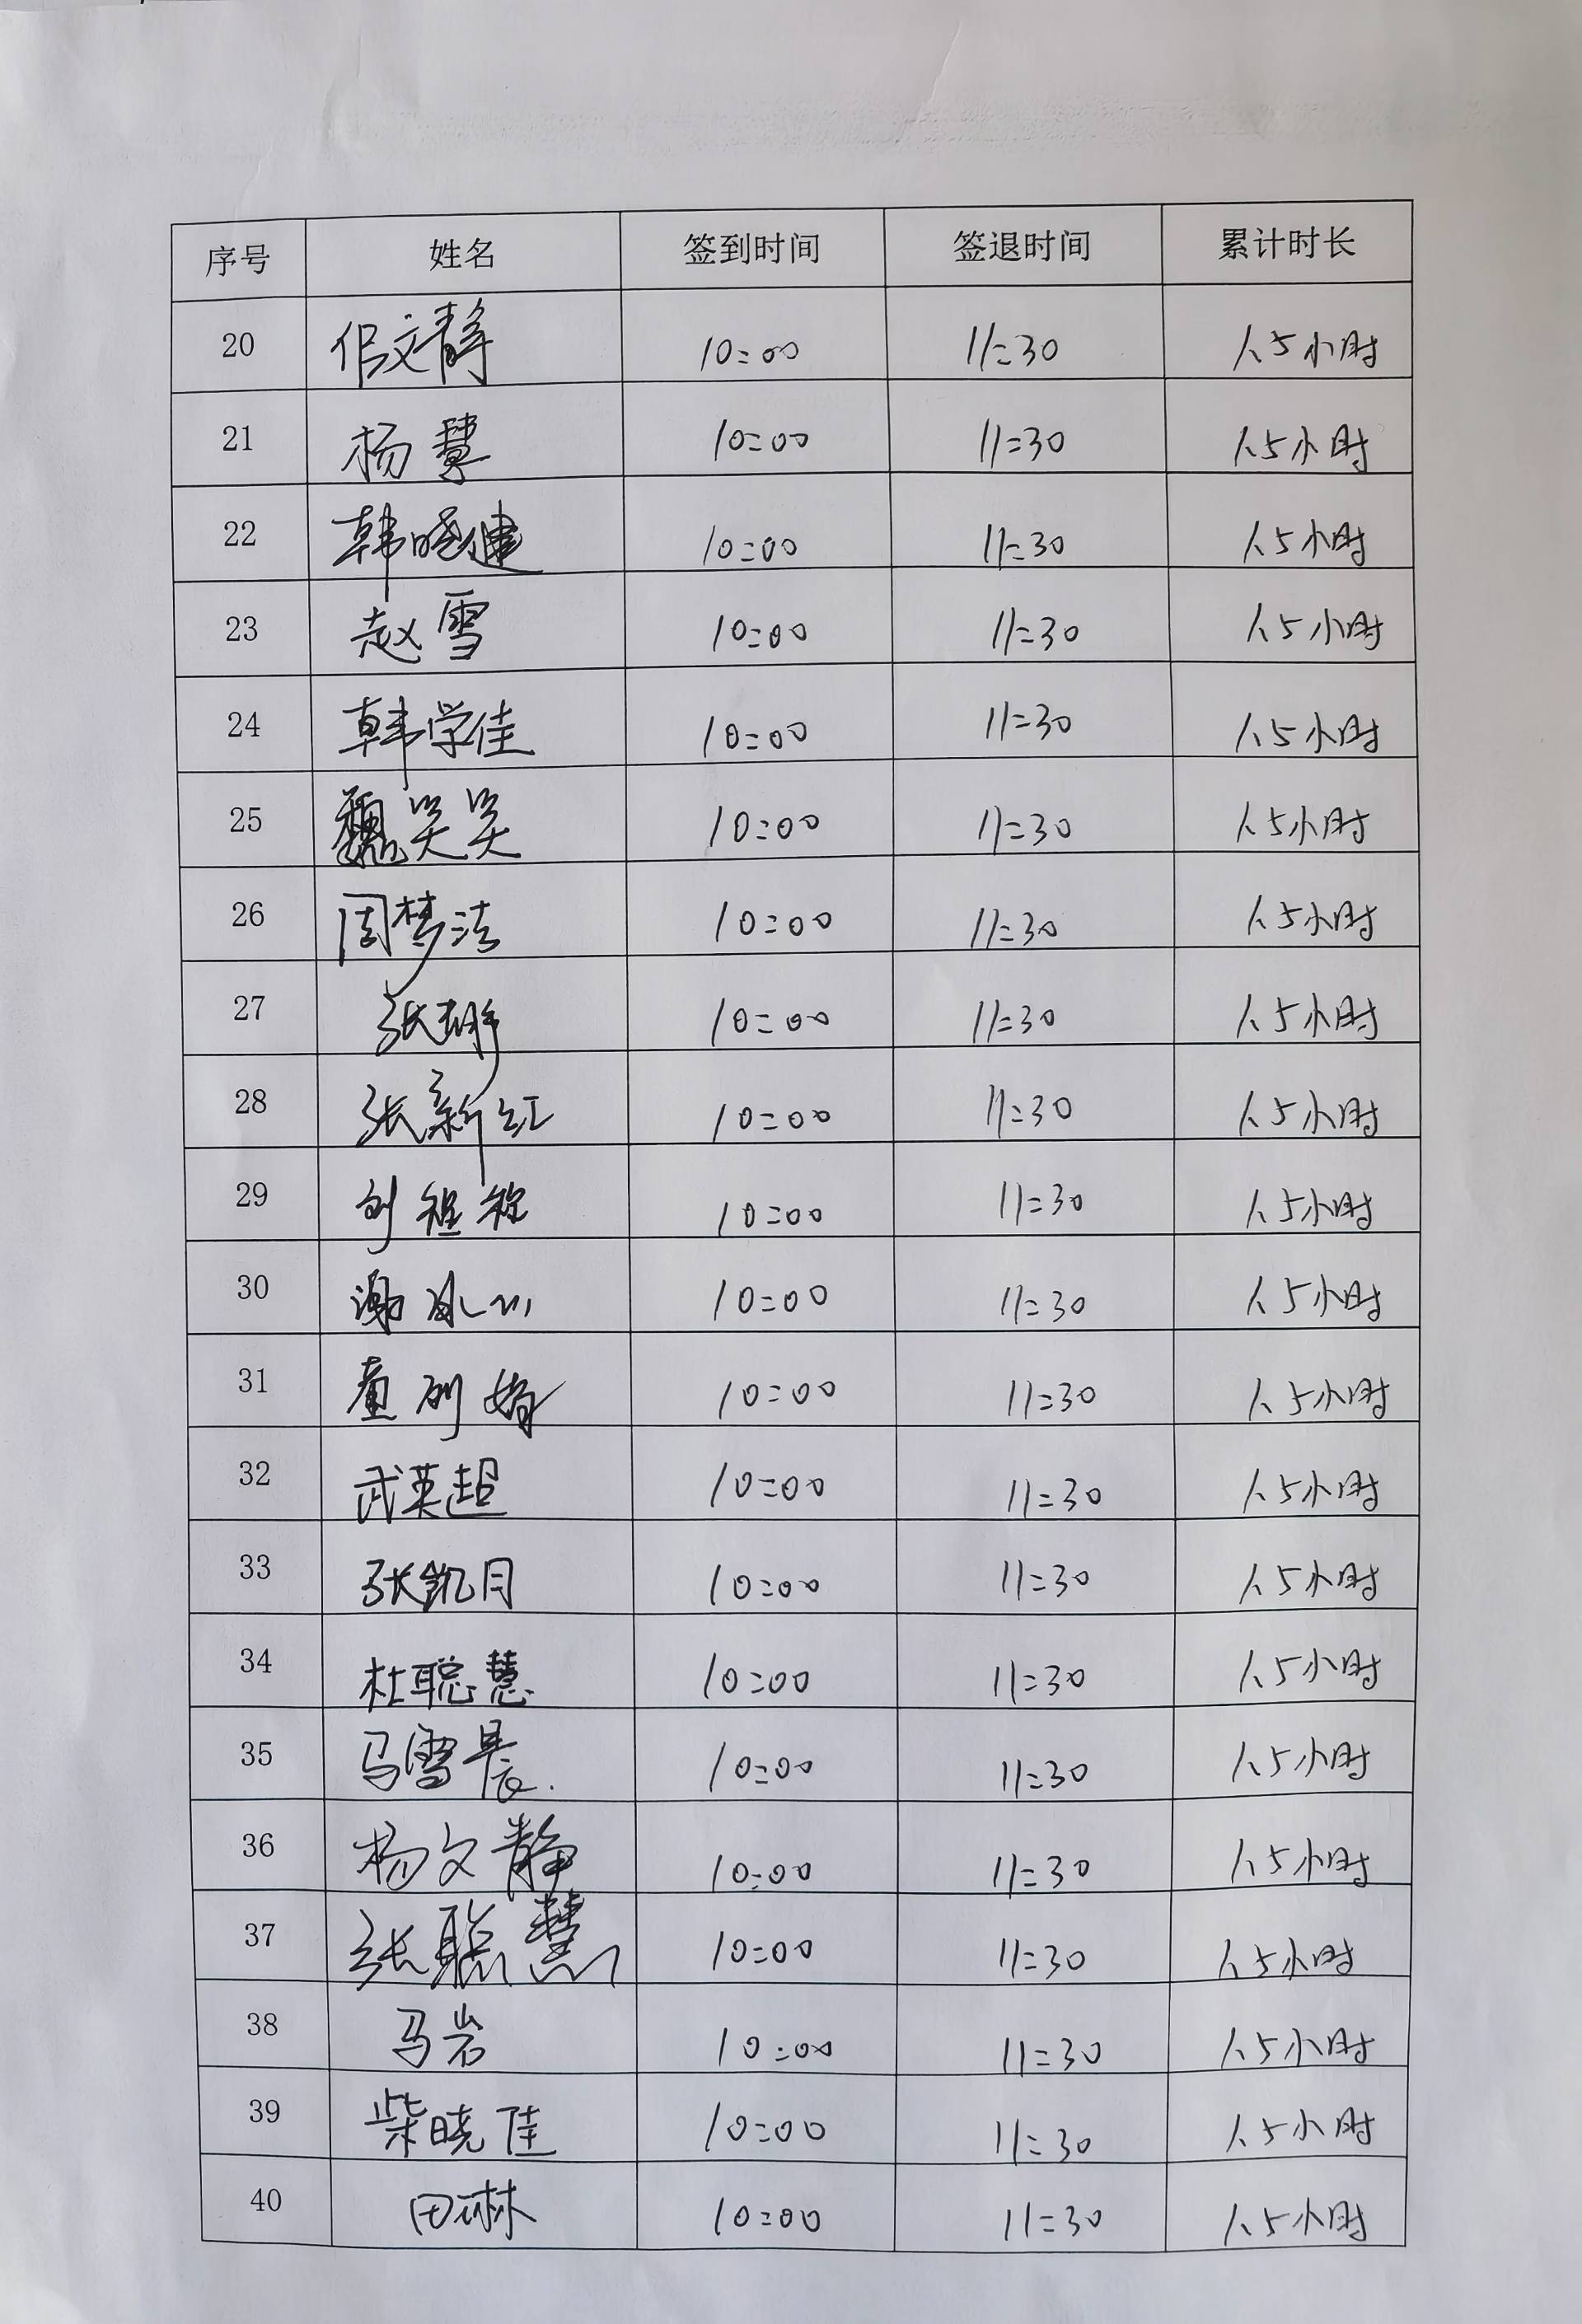 序号 姓名 签到时间 签退时间 累计时长
20 侣文静 10:00 11:30 1.5小时
21 杨慧 10:00 11:30 1.5小时
22 韩晓建 10:00 11:30 1.5小时
23 赵雪 10:00 11:30 1.5小时
24 韩学佳 10:00 11:30 1.5小时
25 魏笑笑 10:00 11:30 1.5小时
26 周梦洁 10:00 11:30 1.5小时
27 张 10:00 11:30 1.5小时
28 张新红 10:00 11:30 1.5小时
29 刘程程 10:00 11:30 1.5小时
30 谢冰心 10:00 11:30 1.5小时
31 10:00 11:30 1.5小时
32 武英超 10:00 11:30 1.5小时
33 张凯月 10:00 11:30 1.5小时
34 杜聪慧 10:00 11:30 1.5小时
35 马雪晨. 10:00 11:30 1.5小时
36 杨文静 10:00 11:30 1.5小时
37 张聪慧 10:00 11:30 1.5小时
38 马岩 10:00 11:30 1.5小时
39 柴晓佳 10:00 11:30 1.5小时
40 田琳 10:00 11:30 1.5小时